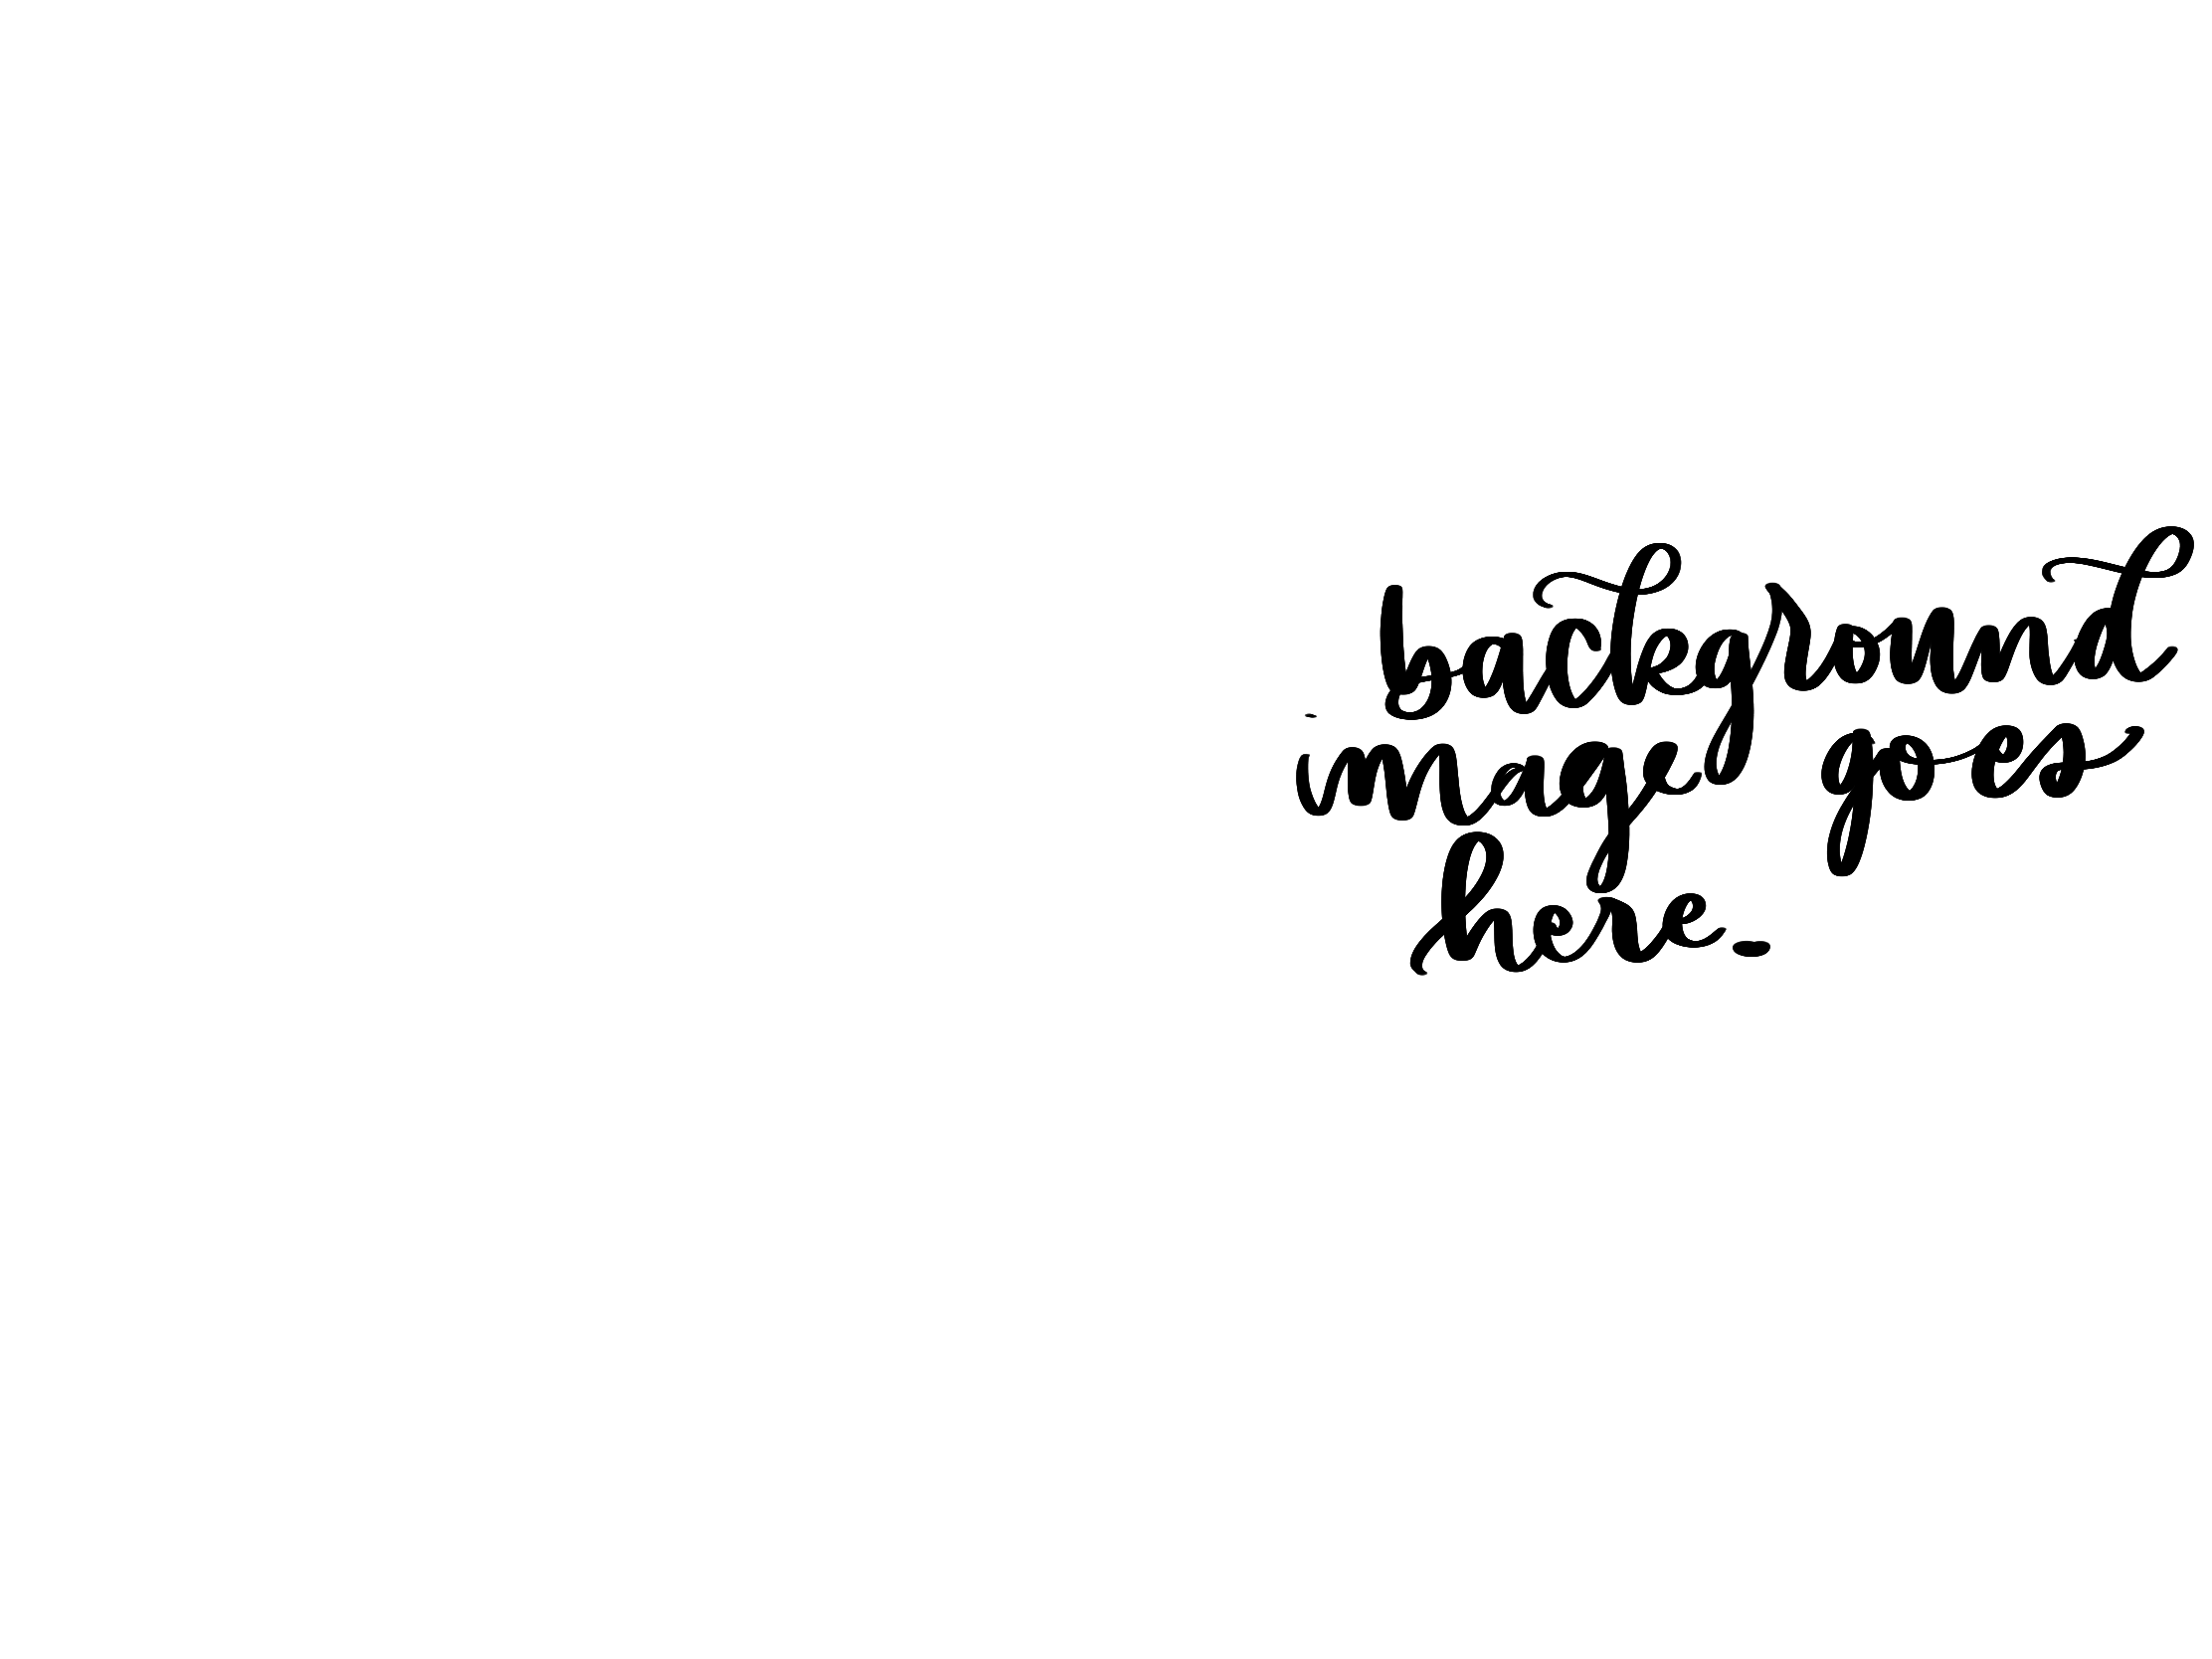 background
image goes
here.